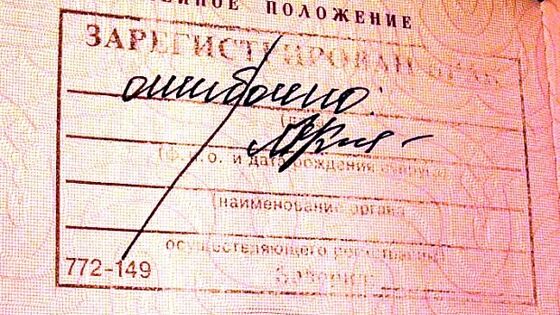 ПОЛОЖЕНИЕ
ЗАРЕГИСТРИРОВАН БРАК
ошибочно!
(ф. и. о. и дата рождения супруга)
(наименование органа
осуществляющего регистрацию)
772-149 Заверил